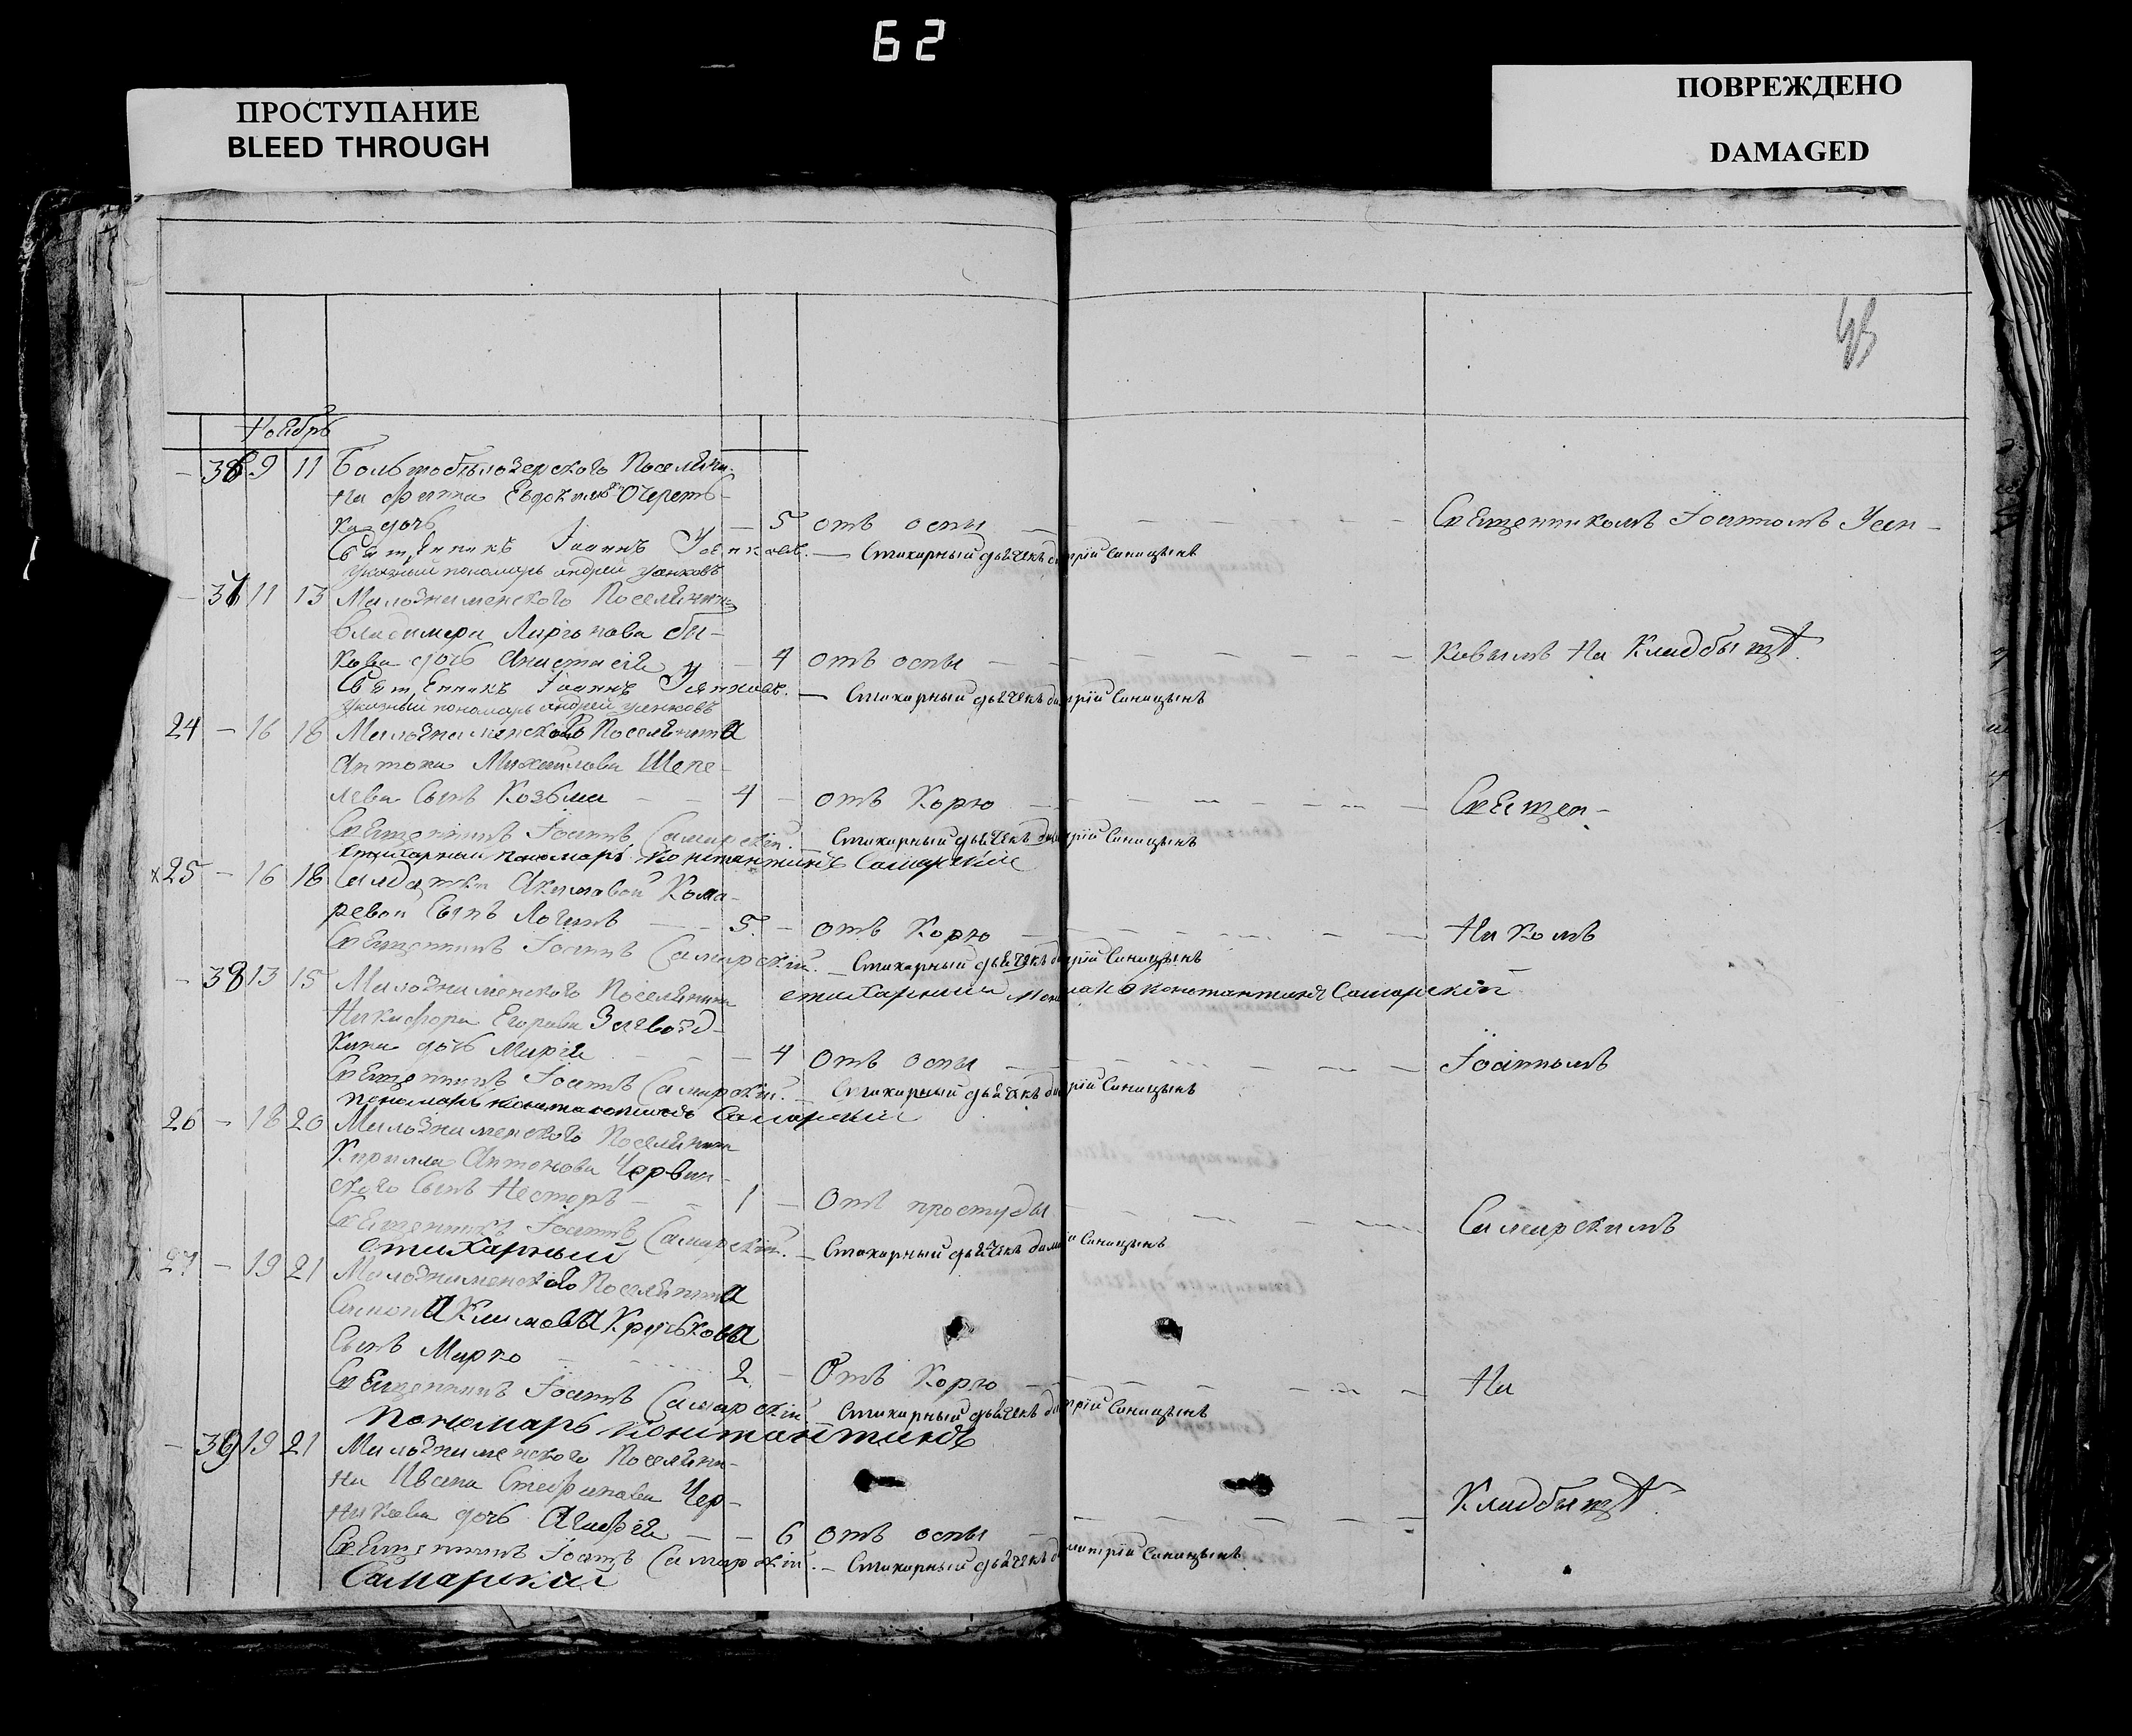 62
ПРОСТУПАНИЕ
BLEED THROUGH
ПОВРЕЖДЕНО
DAMAGED
Ноябрь
— 36 9 11 Большобѣлозерского Поселяни-
на Евдокимова Очереть-
ка дочь — 5 отъ оспы — Священникомъ Іоанномъ Усен-
Священникъ Іоаннъ Усенковъ. — Стихарный дьячекъ Димитрій Синицынъ
Указный пономарь Андрей Усенковъ
— 37 11 13 Малознаменского Поселянина
Владимера Ларионова Бы-
кова дочь Анастасія — 4 отъ оспы — ковымъ На Кладбыщѣ.
Священникъ Іоаннъ Усенковъ. — Стихарный дьячекъ Димитрій Синицынъ
Указный пономарь Андрей Усенковъ
24 — 16 18 Малознаменского Поселянина
Антона Михайлова Шепе-
лева Сынъ Козьма — 4 — отъ Корю — Священ-
Священникъ Іоаннъ Самарскій. — Стихарный дьячекъ Димитрій Синицынъ
Стихарный пономарь Константинъ Самарский
х 25 — 16 18 Салдатки Акимовой Кома-
ревой Сынъ Логинъ — 5. — отъ Корю — Никомъ
Священникъ Іоаннъ Самарскій. — Стихарный дьячекъ Димитрій Синицынъ
— 38 13 15 Малознаменского Поселянина стихарный Константинъ Самарскій
Никифора Егорова Загвозд-
кина дочь Марія — 4 отъ оспы — Іоанномъ
Священникъ Іоаннъ Самарскій. — Стихарный дьячекъ Димитрій Синицынъ
пономарь Константинъ Самарский
26 — 18 20 Малознаменского Поселянина
Кирилла Антонова Червин-
ского Сынъ Несторъ — 1 — Отъ простуды — Самарскимъ
Священникъ Іоаннъ Самарскій. — Стихарный дьячекъ Димитрій Синицынъ
стихарный
27 — 19 21 Малознаменского Поселянина
Самона Климова Крупькова
Сынъ Марко — 2. — Отъ Корю — На
Священникъ Іоаннъ Самарскій — Стихарный дьячекъ Димитрій Синицынъ
пономарь Константинъ
— 39 19 21 Малознаменского Поселяни-
на Ивана Стефанова Чер-
никова дочь Агафія — 6 отъ оспы — Кладбыщѣ.
Священникъ Іоаннъ Самарскій. — Стихарный дьячекъ Димитрій Синицынъ
Самарский